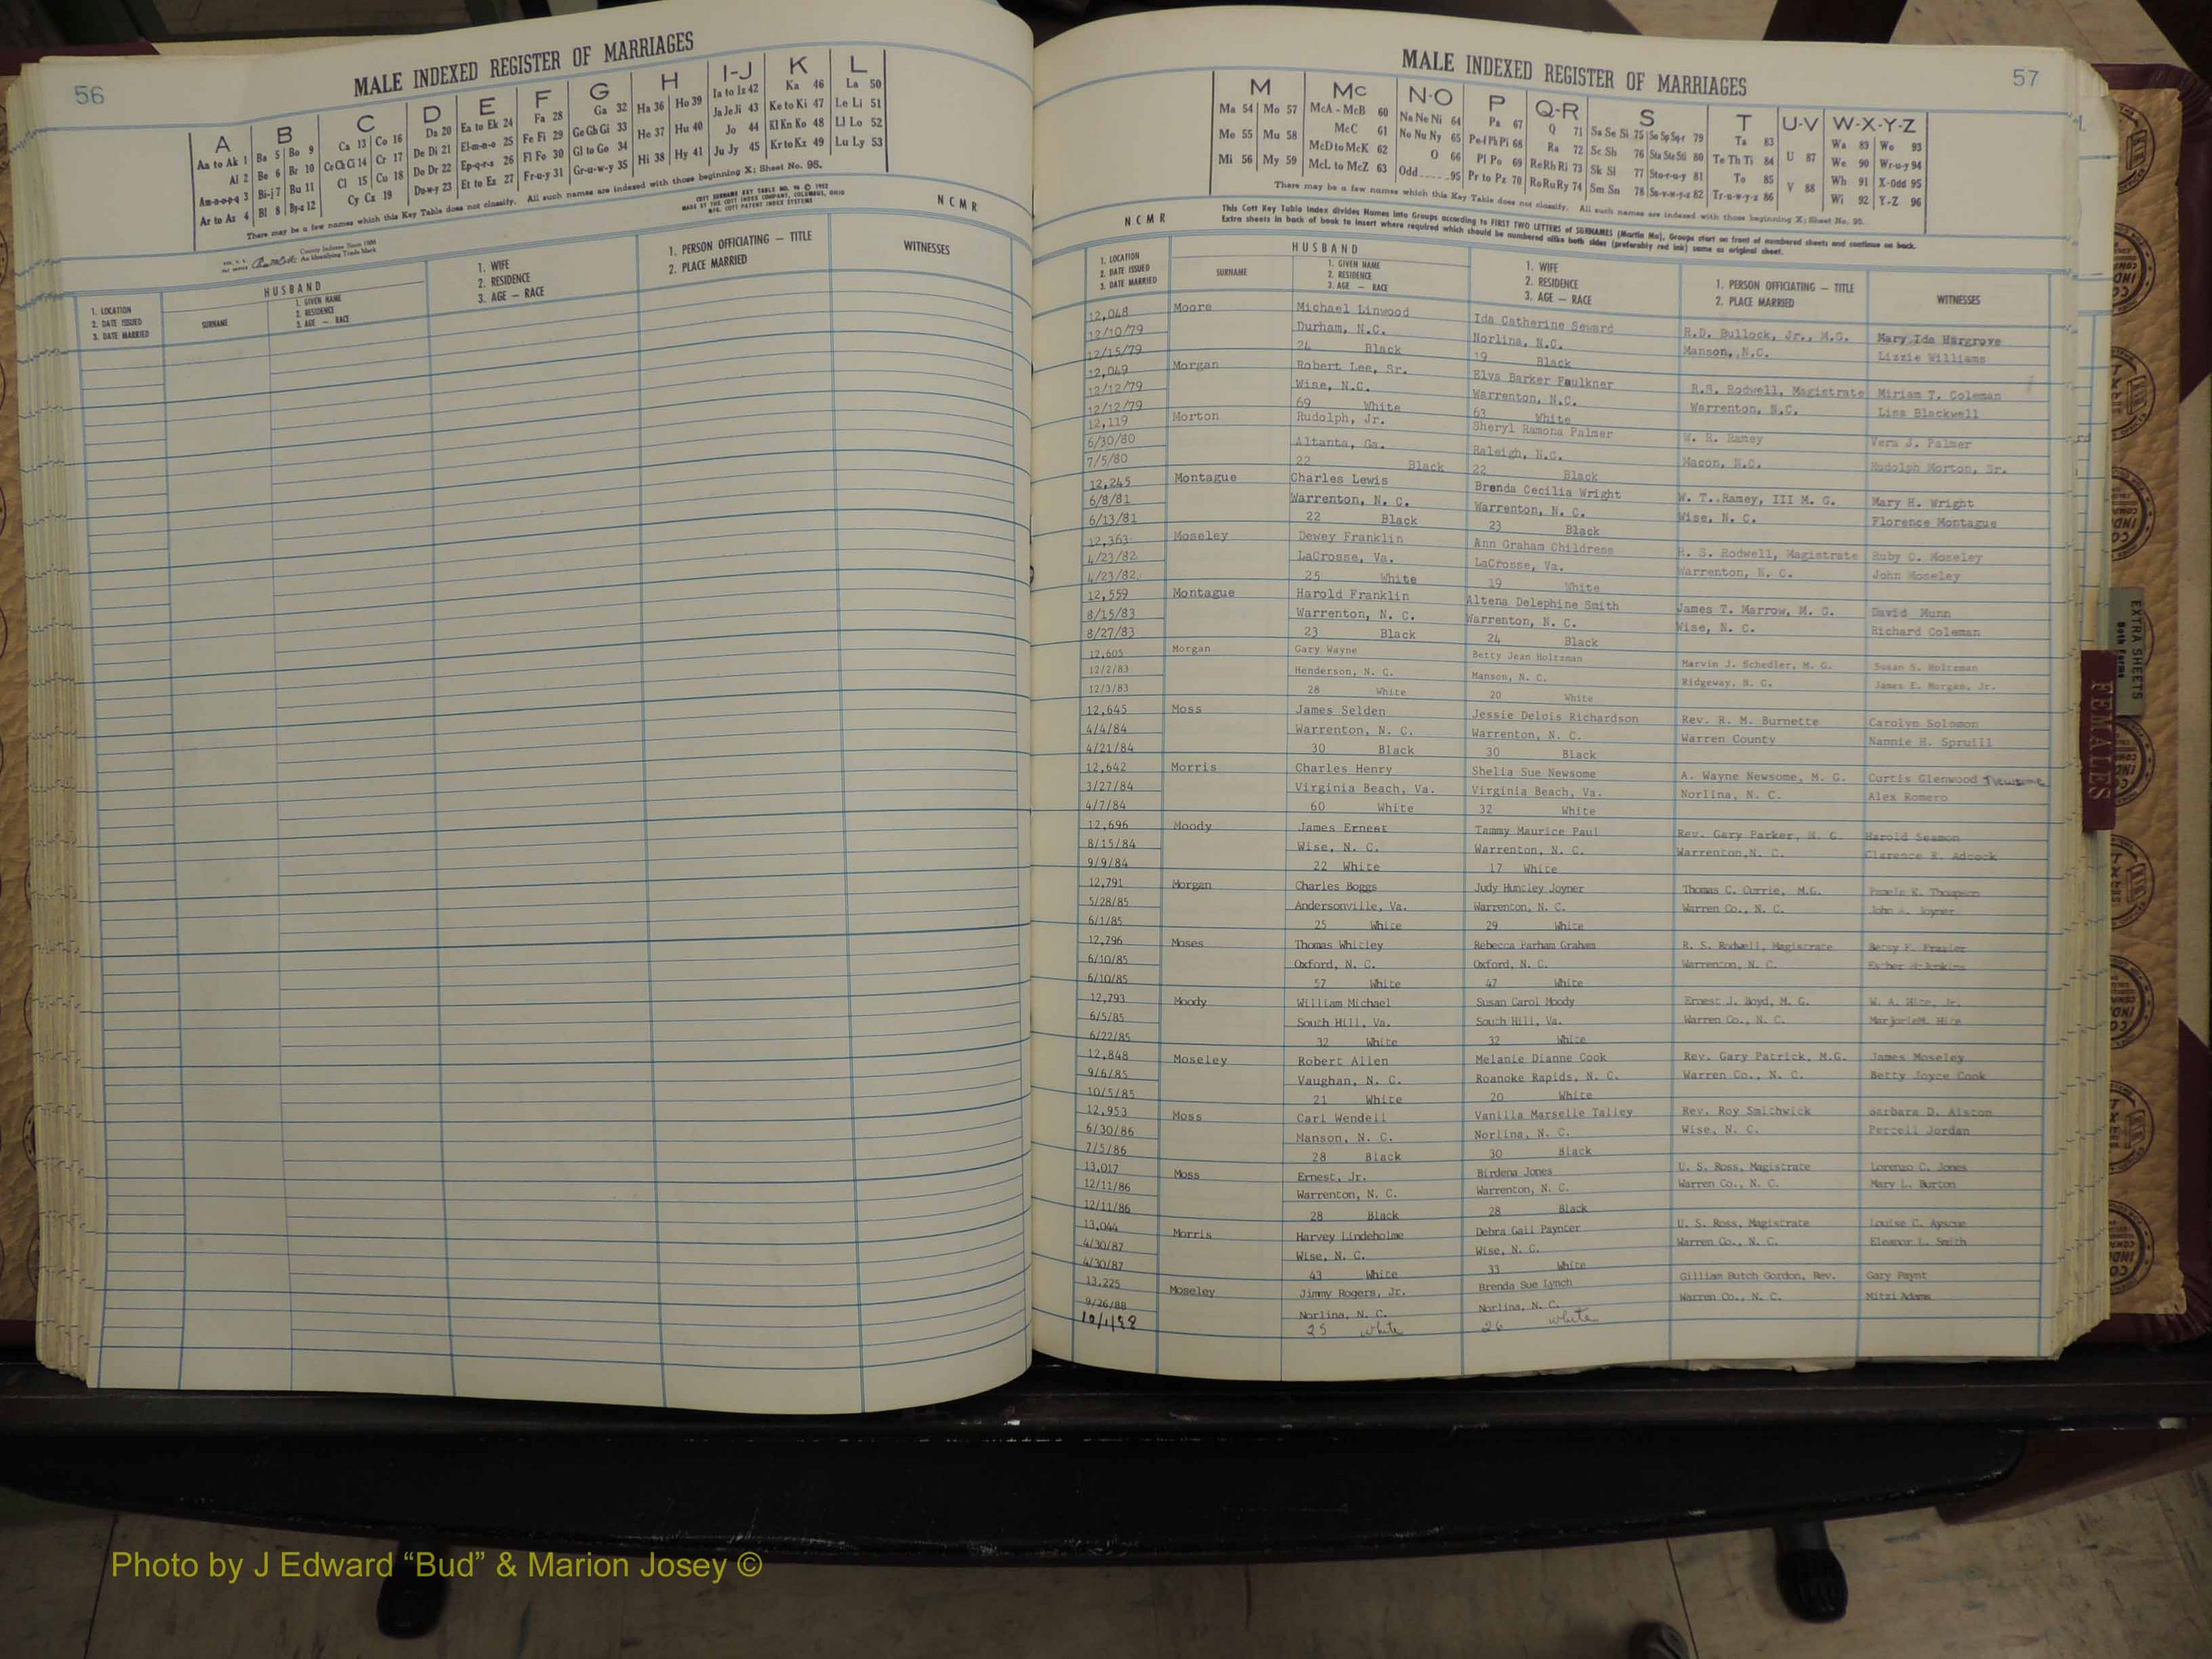 56
MALE INDEXED REGISTER OF MARRIAGES
A B C D E F G H I-J K L
Aa to Ak 1 Ba 5 Bo 9 Ca 13 Co 16 Da 20 Ea to Ek 24 Fa 28 Ga 32 Ha 36 Ho 39 Ia to Iz 42 Ka 46 La 50
Al 2 Be 6 Br 10 Ce Ch Ci 14 Cr 17 De Di 21 El-m-n-o 25 Fe Fi 29 Ge Gh Gi 33 He 37 Hu 40 Ja Je Ji 43 Ke to Ki 47 Le Li 51
Am-n-o-p-q 3 Bi-j 7 Bu 11 Cl 15 Cu 18 Do Dr 22 Ep-q-r-s 26 Fl Fo 30 Gl to Go 34 Hi 38 Hy 41 Jo 44 Kl Kn Ko 48 Ll Lo 52
Ar to Az 4 Bl 8 By-z 12 Cy Cz 19 Du-w-y 23 Et to Ez 27 Fr-u-y 31 Gr-u-w-y 35 Ju Jy 45 Kr to Kz 49 Lu Ly 53
There may be a few names which this Key Table does not classify. All such names are indexed with those beginning X; Sheet No. 95.
County Indexes Since 1888
An Identifying Trade Mark
COTT SURNAME KEY TABLE NO. 96 © 1952
MADE BY THE COTT INDEX COMPANY, COLUMBUS, OHIO
MFG. COTT PATENT INDEX SYSTEMS
N C M R
1. LOCATION
2. DATE ISSUED
3. DATE MARRIED
HUSBAND
SURNAME
1. GIVEN NAME
2. RESIDENCE
3. AGE — RACE
1. WIFE
2. RESIDENCE
3. AGE — RACE
1. PERSON OFFICIATING — TITLE
2. PLACE MARRIED
WITNESSES
57
MALE INDEXED REGISTER OF MARRIAGES
M Mc N-O P Q-R S T U-V W-X-Y-Z
Ma 54 Mo 57 McA - McB 60 Na Ne Ni 64 Pa 67 Q 71 Sa Se Si 75 So Sp Sq-r 79 Ta 83 U 87 Wa 89 Wo 93
Me 55 Mu 58 McC 61 No Nu Ny 65 Pe-f Ph Pi 68 Ra 72 Sc Sh 76 Sta Ste Sti 80 Te Th Ti 84 V 88 We 90 Wr-u-y 94
Mi 56 My 59 McD to McK 62 O 66 Pl Po 69 Re Rh Ri 73 Sk Sl 77 Sto-r-u-y 81 To 85 Wh 91 X-Odd 95
McL to McZ 63 Odd 95 Pr to Pz 70 Ro Ru Ry 74 Sm Sn 78 Su-v-w-y-z 82 Tr-u-w-y-z 86 Wi 92 Y-Z 96
There may be a few names which this Key Table does not classify. All such names are indexed with those beginning X; Sheet No. 95.
This Cott Key Table Index divides Names into Groups according to FIRST TWO LETTERS of SURNAMES (Martin Ma), Groups start on front of numbered sheets and continue on back.
Extra sheets in back of book to insert where required which should be numbered alike both sides (preferably red ink) same as original sheet.
N C M R
1. LOCATION
2. DATE ISSUED
3. DATE MARRIED
HUSBAND
SURNAME
1. GIVEN NAME
2. RESIDENCE
3. AGE — RACE
1. WIFE
2. RESIDENCE
3. AGE — RACE
1. PERSON OFFICIATING — TITLE
2. PLACE MARRIED
WITNESSES
12,048 Moore Michael Linwood Ida Catherine Seward R.D. Bullock, Jr., M.G. Mary Ida Hargrove
12/10/79 Durham, N.C. Norlina, N.C. Manson, N.C. Lizzie Williams
12/15/79 24 Black 19 Black
12,049 Morgan Robert Lee, Sr. Elva Barker Faulkner R.S. Rodwell, Magistrate Miriam T. Coleman
12/12/79 Wise, N.C. Warrenton, N.C. Warrenton, N.C. Lisa Blackwell
12/12/79 69 White 63 White
12,119 Morton Rudolph, Jr. Sheryl Ramona Palmer W. R. Ramey Vera J. Palmer
6/30/80 Altanta, Ga. Raleigh, N.C. Macon, N.C. Rudolph Morton, Sr.
7/5/80 22 Black 22 Black
12,245 Montague Charles Lewis Brenda Cecilia Wright W. T. Ramey, III M. G. Mary H. Wright
6/8/81 Warrenton, N. C. Warrenton, N. C. Wise, N. C. Florence Montague
6/13/81 22 Black 23 Black
12,363 Moseley Dewey Franklin Ann Graham Childress R. S. Rodwell, Magistrate Ruby C. Moseley
4/23/82 LaCrosse, Va. LaCrosse, Va. Warrenton, N. C. John Moseley
4/23/82 25 White 19 White
12,559 Montague Harold Franklin Altena Delephine Smith James T. Marrow, M. G. David Munn
8/15/83 Warrenton, N. C. Warrenton, N. C. Wise, N. C. Richard Coleman
8/27/83 23 Black 24 Black
12,605 Morgan Gary Wayne Betty Jean Holtzman Marvin J. Schedler, M. G. Susan S. Holtzman
12/2/83 Henderson, N. C. Manson, N. C. Ridgeway, N. C. James E. Morgan, Jr.
12/3/83 28 White 20 White
12,645 Moss James Selden Jessie Delois Richardson Rev. R. M. Burnette Carolyn Solomon
4/4/84 Warrenton, N. C. Warrenton, N. C. Warren County Nannie H. Spruill
4/21/84 30 Black 30 Black
12,642 Morris Charles Henry Shelia Sue Newsome A. Wayne Newsome, M. G. Curtis Glenwood Newsome
3/27/84 Virginia Beach, Va. Virginia Beach, Va. Norlina, N. C. Alex Romero
4/7/84 60 White 32 White
12,696 Moody James Ernest Tammy Maurice Paul Rev. Gary Parker, M. G. Harold Seamon
8/15/84 Wise, N. C. Warrenton, N. C. Warrenton,N. C. Clarence R. Adcock
9/9/84 22 White 17 White
12,791 Morgan Charles Boggs Judy Huncley Joyner Thomas C. Currie, M.G. Pamela K. Thompson
5/28/85 Andersonville, Va. Warrenton, N. C. Warren Co., N. C. John Joyner
6/1/85 25 White 29 White
12,796 Moses Thomas Whitley Rebecca Parham Graham R. S. Rodwell, Magistrate Betsy F. Frazier
6/10/85 Oxford, N. C. Oxford, N. C. Warrenton, N. C. Esther Jenkins
6/10/85 57 White 47 White
12,793 Moody William Michael Susan Carol Moody Ernest J. Boyd, M. G. W. A. Hite, Jr.
6/5/85 South Hill, Va. South Hill, Va. Warren Co., N. C. MarjorieM. Hite
6/22/85 32 White 32 White
12,848 Moseley Robert Allen Melanie Dianne Cook Rev. Gary Patrick, M.G. James Moseley
9/6/85 Vaughan, N. C. Roanoke Rapids, N. C. Warren Co., N. C. Betty Joyce Cook
10/5/85 21 White 20 White
12,953 Moss Carl Wendell Vanilla Marselle Talley Rev. Roy Smithwick Barbara D. Alston
6/30/86 Manson, N. C. Norlina, N. C. Wise, N. C. Percell Jordan
7/5/86 28 Black 30 Black
13,017 Moss Ernest, Jr. Birdena Jones U. S. Ross, Magistrate Lorenzo C. Jones
12/11/86 Warrenton, N. C. Warrenton, N. C. Warren Co., N. C. Mary L. Burton
12/11/86 28 Black 28 Black
13,044 Morris Harvey Lindeholme Debra Gail Paynter U. S. Ross, Magistrate Louise C. Ayscue
4/30/87 Wise, N. C. Wise, N. C. Warren Co., N. C. Eleanor L. Smith
4/30/87 43 White 33 White
13,225 Moseley Jimmy Rogers, Jr. Brenda Sue Lynch Gilliam Butch Gordon, Rev. Gary Paynt
9/26/88 Norlina, N. C. Norlina, N. C. Warren Co., N. C. Mitzi Adams
10/1/88 25 white 26 white
EXTRA SHEETS
FEMALES
Photo by J Edward “Bud” & Marion Josey ©